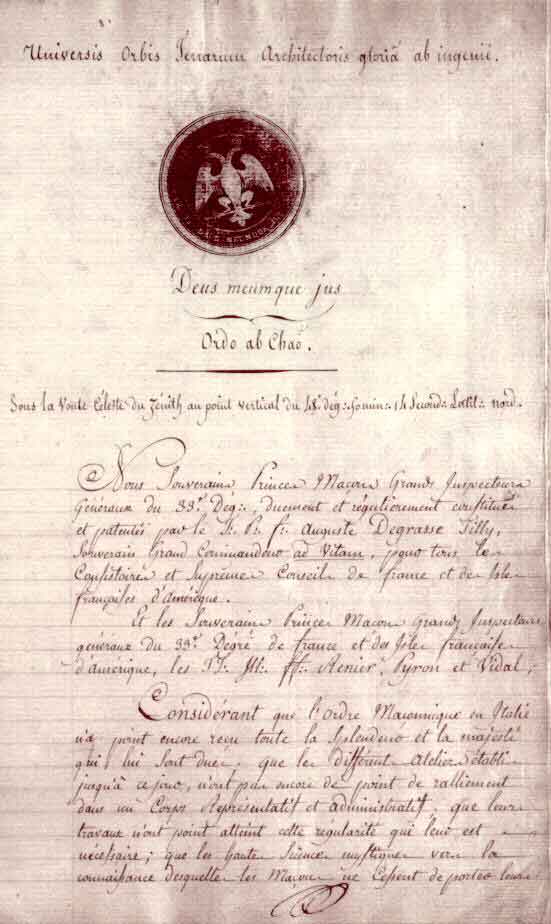 Universis Orbis Terrarum Architectoris gloriâ ab ingeniî.
Deus meumque jus
Ordo ab Chaô.
Sous la Voute Céleste du Zénith au point vertical du 48.e dég: 50 min: 14 Second: Latit: nord.
Nous Souverains Princes Maçons Grands Inspecteurs
Généraux du 33.e Dég:, duement et régulierement constitués
et patentés par le F. P. f: Auguste Degrasse Tilly,
Souverain Grand Commandeur ad Vitam, pour tous le
Consistoires et Suprême Conseil de france et des Isles
françaises d'Amérique.
Et les Souverains Princes Maçons Grands Inspecteurs
généraux du 33.e Dégré de france et des Isles françaises
d'Amérique, les TT: Ill: ff: Renier, Pyron et Vidal;
Considérant que l'ordre Maçonnique en Italie
n'a point encore reçu toute la Splendeur et la majesté
qui lui sont dues; que les différents Ateliers établis
jusqu'à ce jour, n'ont pas encore de point de ralliement
dans un Corps Représentatif et administratif, que leurs
travaux n'ont point atteint cette regularité qui leur est
nécessaire; que les hautes Sciences mystiques vers la
connaissance desquelles les Maçons ne Cessent de porter leurs